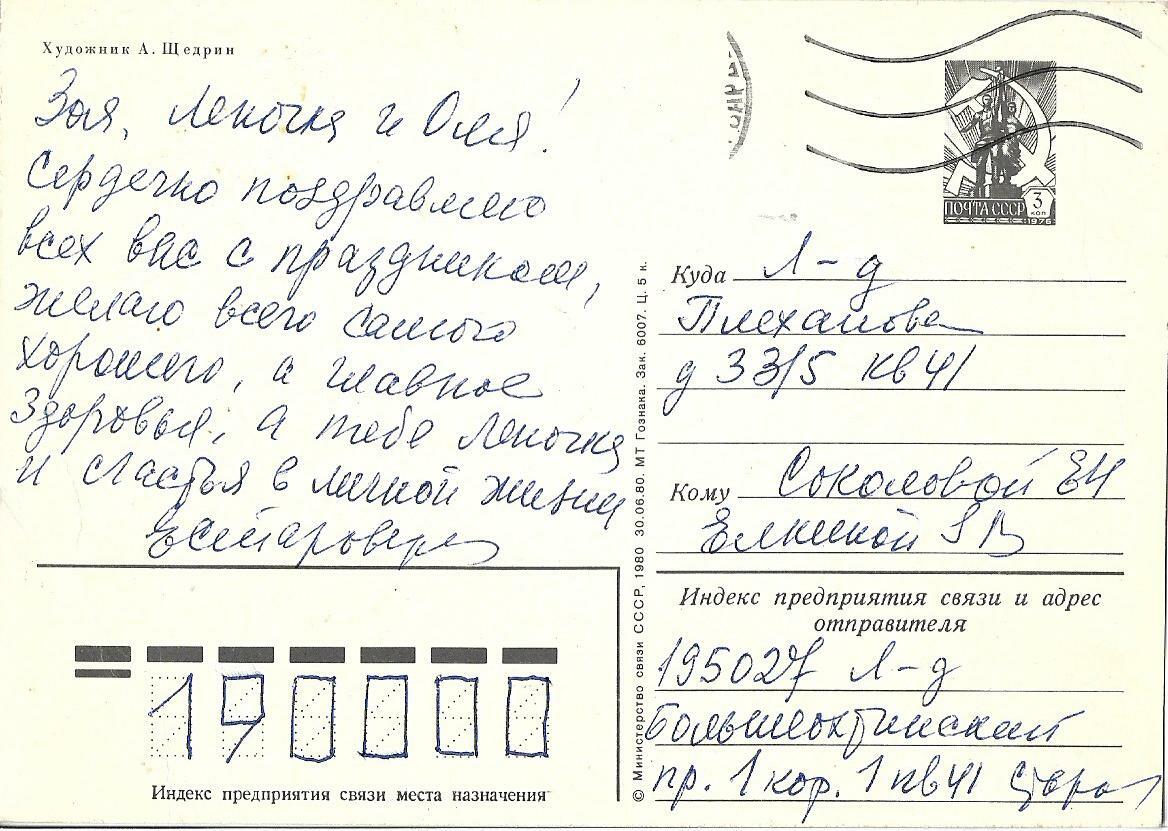 Художник А. Щедрин
Зоя, Леночка и Оля!
Сердечно поздравляю
всех вас с праздником,
желаю всего самого
хорошего, а главное
здоровья, а тебе Леночка
и счастья в личной жизни
ПОЧТА СССР 3 коп
1976
Куда Л-д
Плеханова
д 33/5 кв 41
Кому Соколовой ЕН
Елкиной
Индекс предприятия связи и адрес
отправителя
195027 Л-д
Большеохтинский
пр. 1 кор. 1 кв 41
190000
Индекс предприятия связи места назначения
© Министерство связи СССР, 1980 30.06.80. МТ Гознака. Зак. 6007. Ц. 5 к.